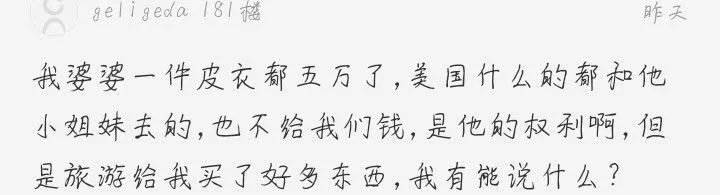 geligeda 181楼
昨天
我婆婆一件皮衣都五万了,美国什么的都和他
小姐妹去的,也不给我们钱,是他的权利啊,但
是旅游给我买了好多东西,我有能说什么?